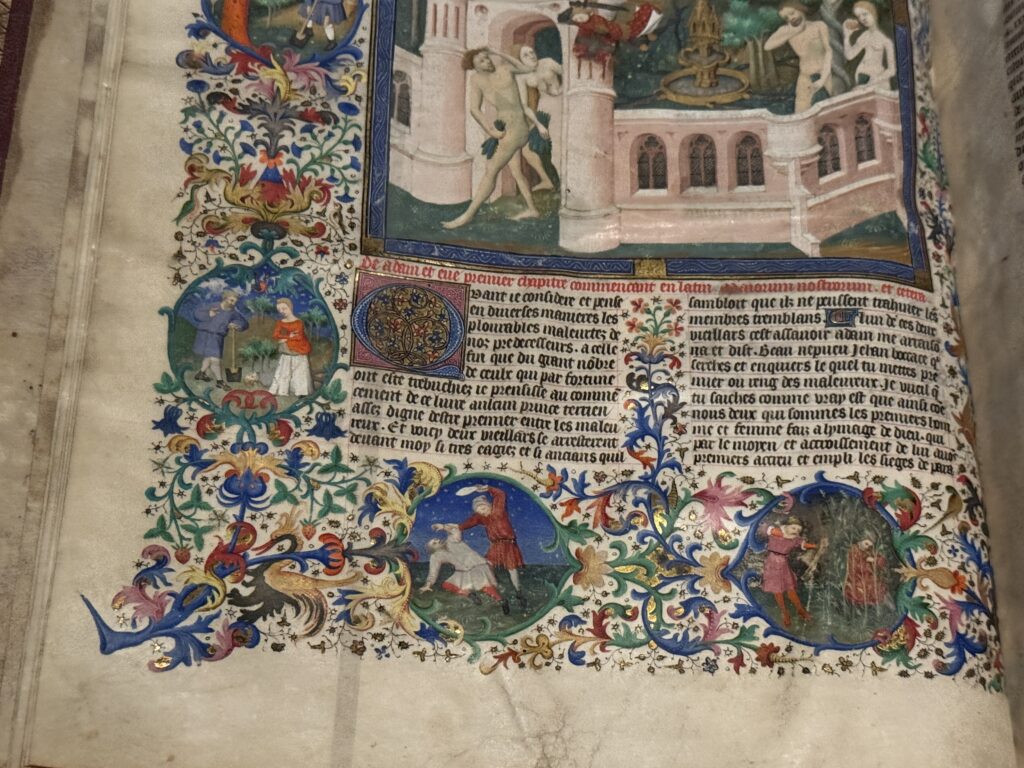 De adam et eue premier chapitre commencant en latin. Maiorum nostrorum. et cetera
Quant ie considere et pense
en diuerses manieres les
plourables maleurtez de
noz predecesseurs. a celle
fin que du grant nōbre
de ceulx qui par fortune
ont este trebuchiez ie prensisse au comme
cement de ce liure aulcun prince terrien
assez digne destre premier entre les maleu
reux. Et voicy deux vieillars se arresterent
deuant moy si tres eagiez et si ancians quil
sambloit que ilz ne peussent trahyner les
membres tremblans. Lun de ces deux
vieillars cest assauoir adam me arraisō
na et dist. Beau nepueu Jehan boccace q̄
cerches et enquiers le quel tu mettras pre
mier ou reng des maleureux. Je vueil q̄
tu saiches comme vray est que ainsi cōe
nous deux qui sommes les premiers hom
me et femme faiz a lymage de dieu. qui
par le moyen et accroissement de lui
premiers accreu et empli les sieges de para